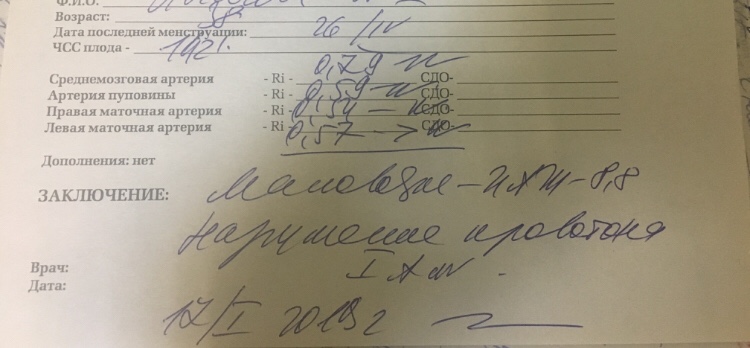 Ф.И.О.
Возраст: 38
Дата последней менструации: 26/IV
ЧСС плода -
Среднемозговая артерия - Ri - 0,79 N СДО-
Артерия пуповины - Ri - 0,59 N СДО-
Правая маточная артерия - Ri - 0,54 - N СДО-
Левая маточная артерия - Ri - 0,57 -> N СДО-
Дополнения: нет
ЗАКЛЮЧЕНИЕ: Маловодие - ИАЖ - 8,8
Нарушение кровотока
I
Врач:
Дата:
17/I 2019 г